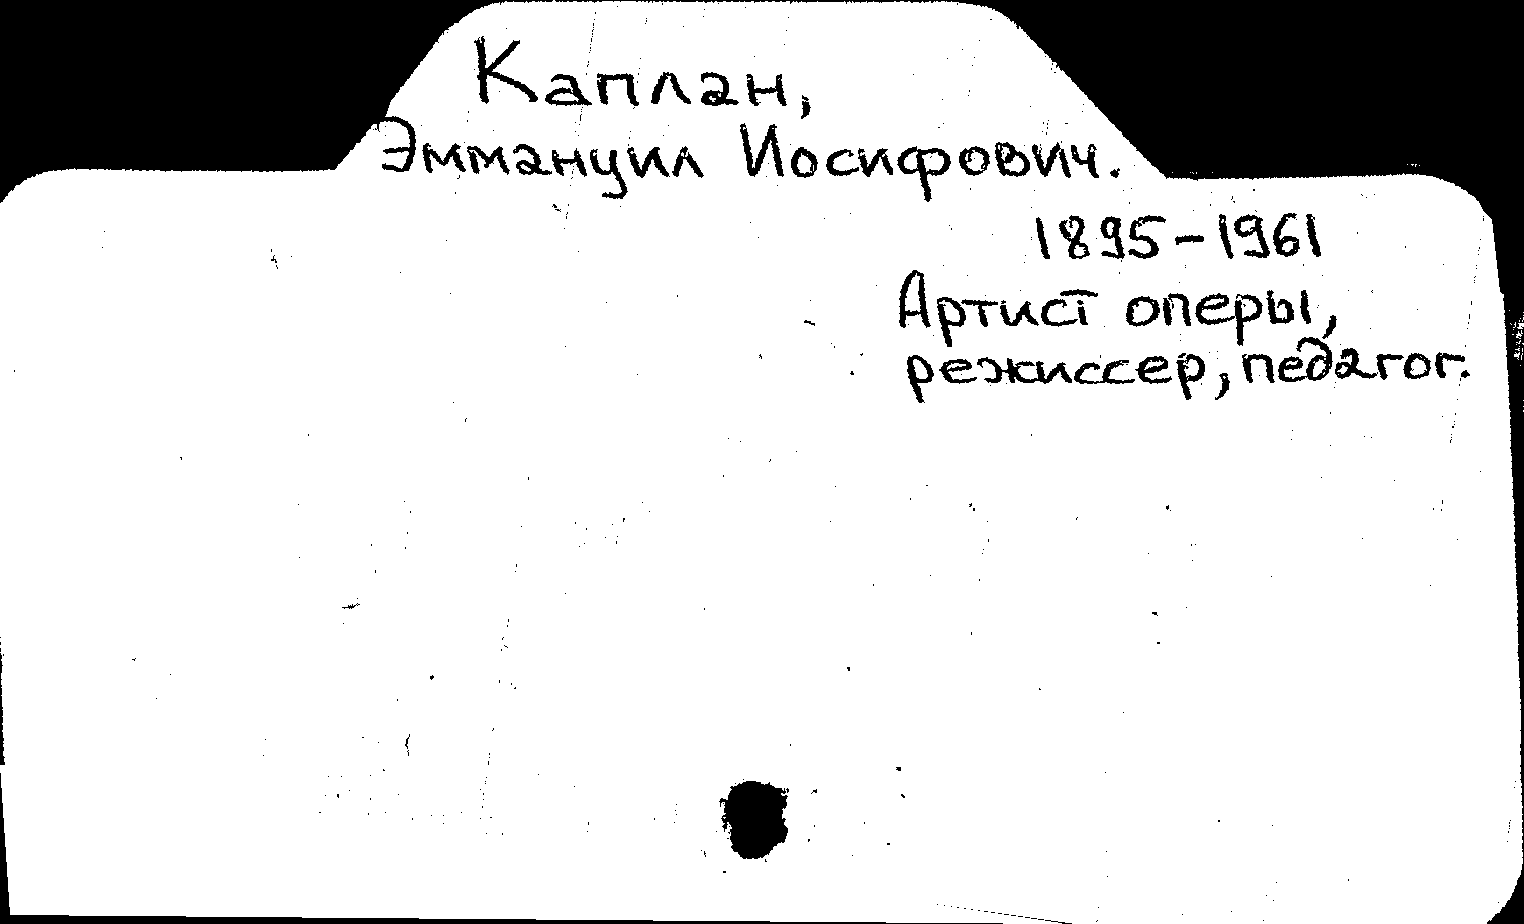 Каплан,
Эммануил Иосифович.
1895-1961
Артист оперы,
режиссер, педагог.